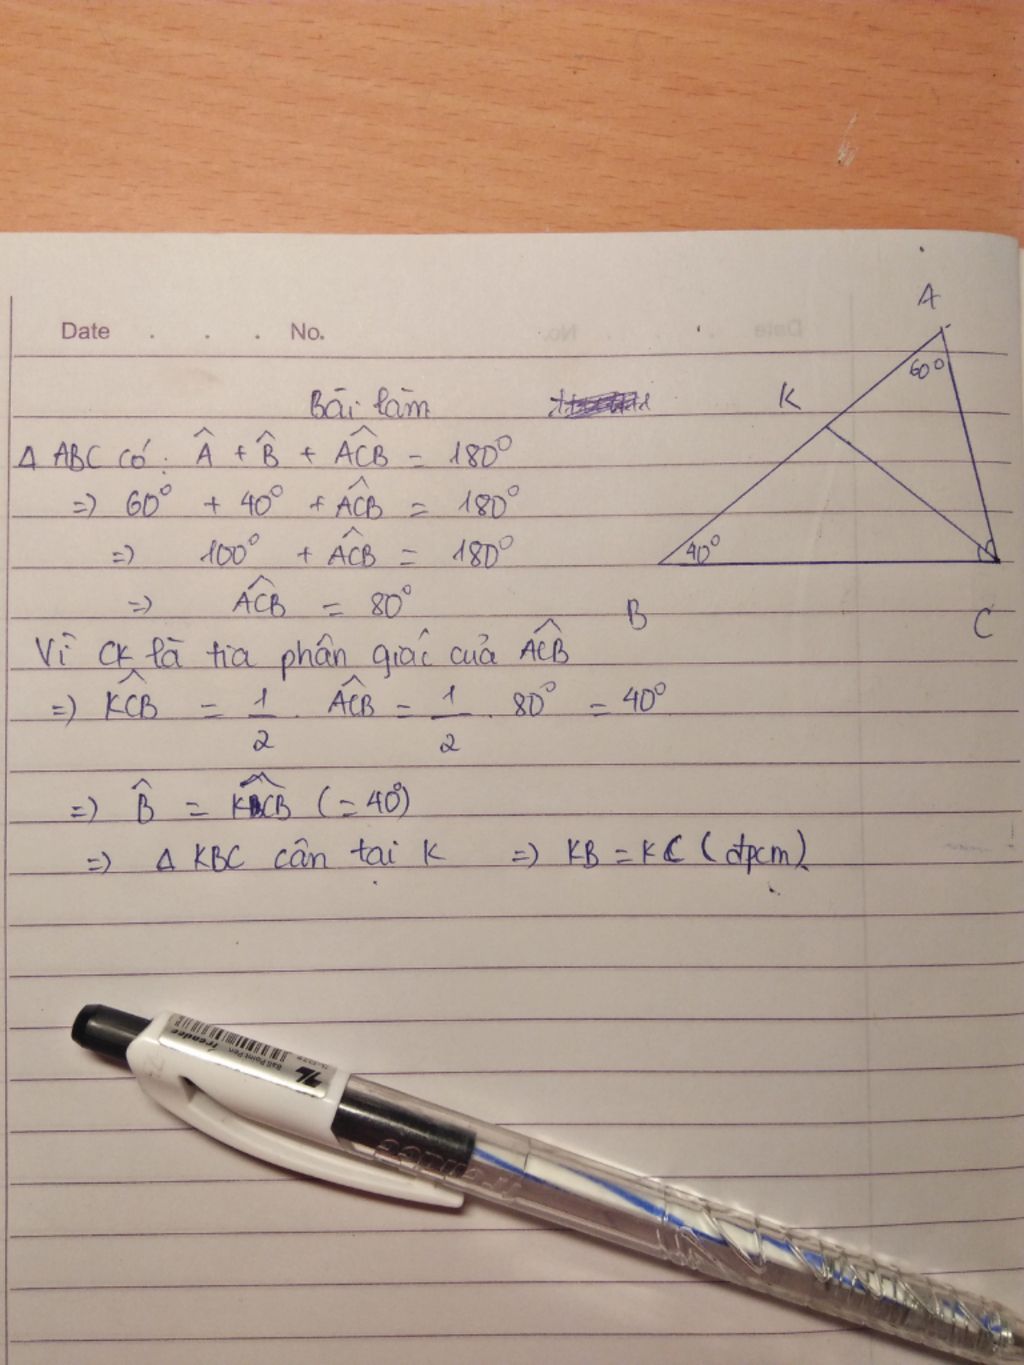 Date . . . No.
Bài làm
Δ ABC có: Â + B̂ + ACB̂ = 180°
=) 60° + 40° + ACB̂ = 180°
=) 100° + ACB̂ = 180°
=) ACB̂ = 80°
Vì CK là tia phân giác của ACB̂
=) KCB̂ = 1/2 . ACB̂ = 1/2 . 80° = 40°
=) B̂ = KCB̂ (= 40°)
=) Δ KBC cân tại K =) KB = KC (đpcm)
A
60°
K
40°
B
C
Trendee
Ball Point Pen
TL
Trendee